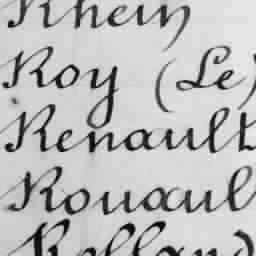 Rhein
Roy (Le)
Renault
Rouaul
Rolland